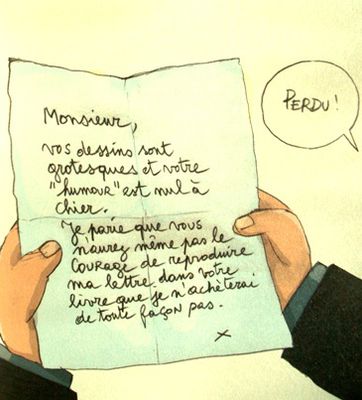 Monsieur,
vos dessins sont
grotesques et votre
"humour" est nul à
chier.
Je parie que vous
n'aurez même pas le
courage de reproduire
ma lettre dans votre
livre que je n'achèterai
de toute façon pas.
x
PERDU!